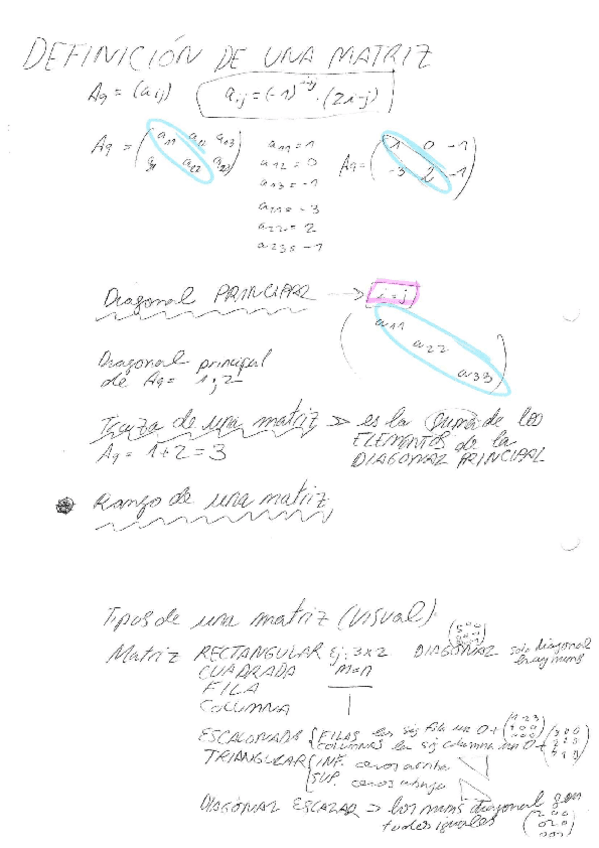 DEFINICIÓN DE UNA MATRIZ
A9 = (aij) aij = (-1)^i+j · (2i-j)
A9 = (a11 a12 a13
a21 a22 a23)
a11 = 1
a12 = 0
a13 = -1
a21 = -3
a22 = 2
a23 = -1
A9 = (1 0 -1
-3 2 -1)
Diagonal PRINCIPAL → i=j
(a11
a22
a33)
Diagonal principal
de A9 = 1, 2
Traza de una matriz → es la suma de los
ELEMENTOS de la
DIAGONAL PRINCIPAL
A9 = 1+2 = 3
Rango de una matriz
Tipos de una matriz (visual)
Matriz RECTANGULAR Ej: 3x2 DIAGONAL solo diagonal
hay nums
CUADRADA m=n
FILA
COLUMNA
ESCALONADA FILAS la sig fila un 0+
COLUMNAS la sig columna un 0+
TRIANGULAR INF. ceros arriba
SUP. ceros abajo
DIAGONAL ESCALAR → los nums diagonal son
todos iguales